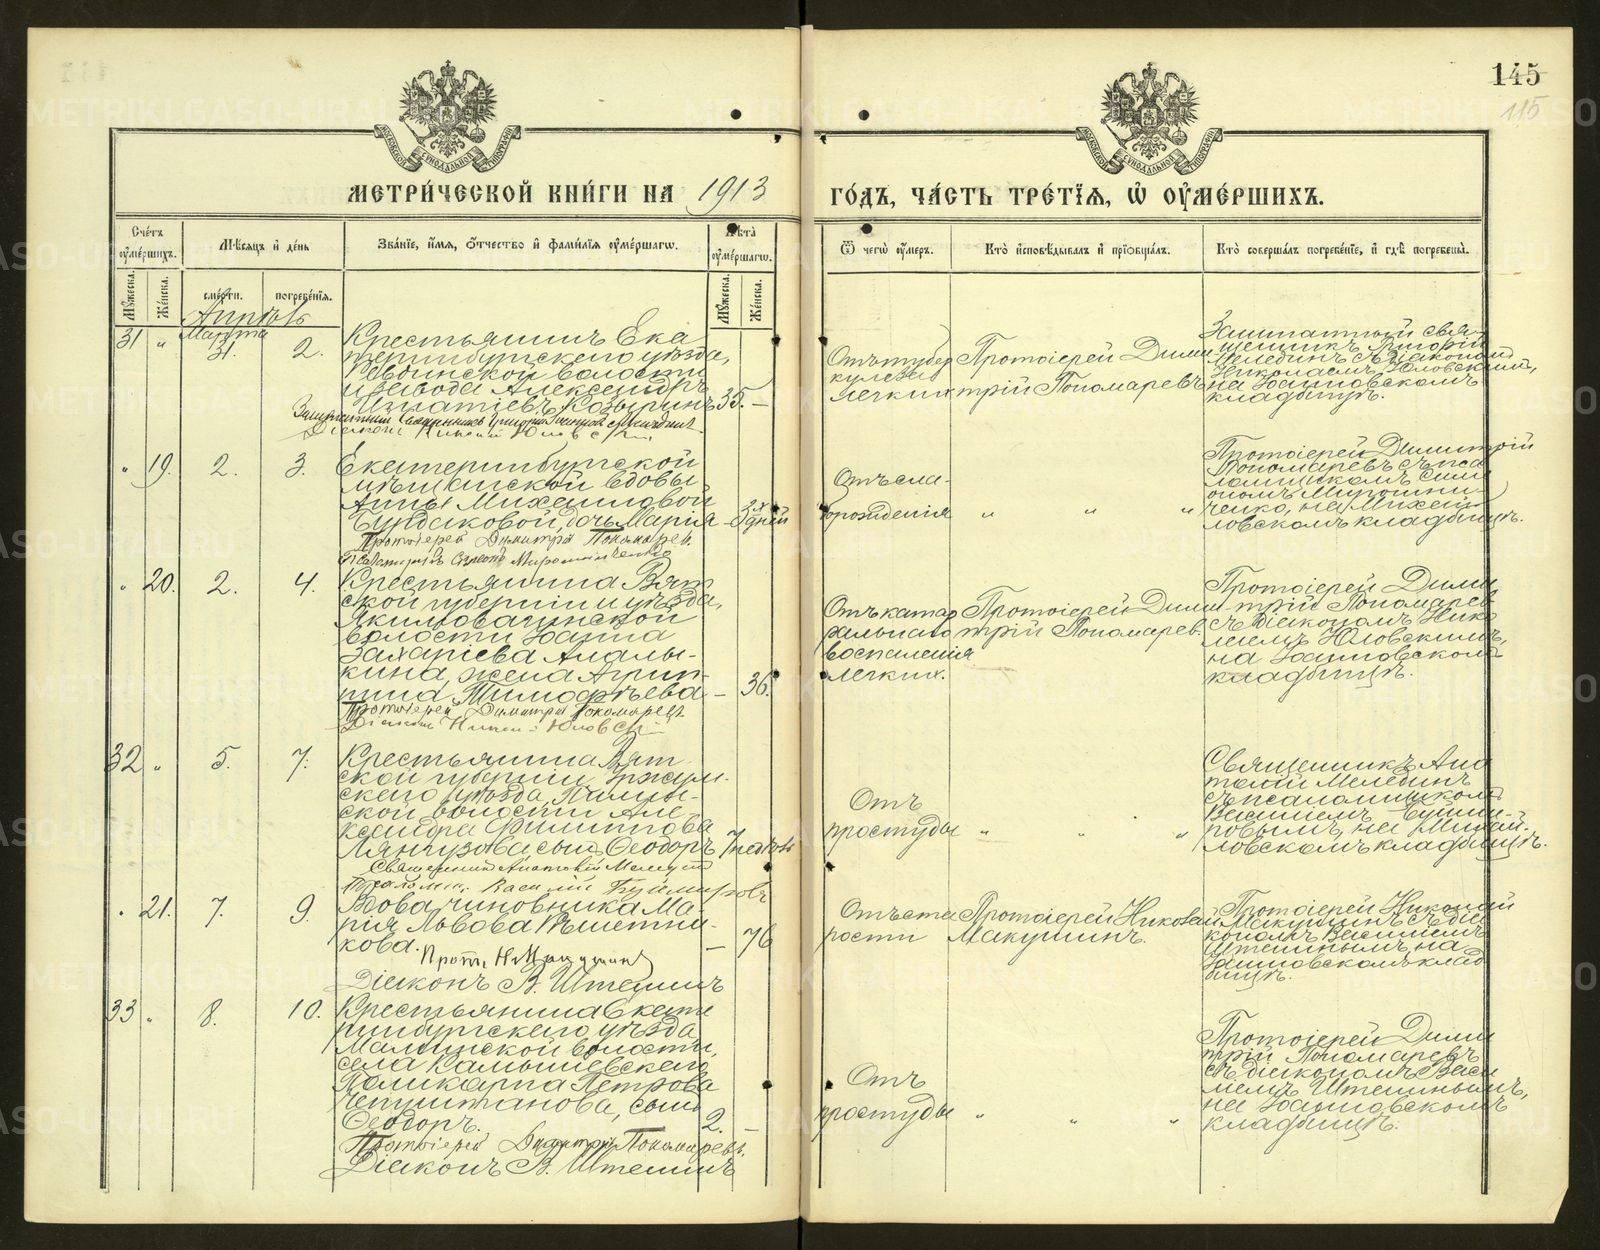 145
115
МЕТРИ́ЧЕСКОЙ КНИ́ГИ НА 1913
ГО́ДЪ, ЧА́СТЬ ТРЕ́ТІЯ, Ѡ ОУМЕ́РШИХЪ.
Сче́тъ оуме́ршихъ.
Мѣсяцъ и день
Зва́ніе, и́мя, о́тчество и фами́лія оуме́ршагѡ.
Лѣта̀ оуме́ршагѡ.
Ѿ чегѡ̀ оу́меръ.
Кто̀ исповѣ́дывалъ и пріобща́лъ.
Кто̀ соверша́лъ погребе́ніе, и гдѣ̀ погребены̀.
Мꙋжеска.
Же́нска.
сме́рти.
погребе́нія.
Мꙋжеска.
Же́нска.
Апрѣль
31 „ Марта 31. 2.
Крестьянинъ Ека
теринбургскаго уѣзда,
Ревдинской волости
и завода Александръ
Игнатіевъ Козыринъ 35. —
Діаконъ Николай Юловскій
Отъ тубер
кулеза
легкихъ
Протоіерей Дими
трій Пономаревъ
Заштатный свя-
щенникъ Григорій
Мелединъ съ діакономъ
Николаемъ Юловскимъ,
на Іоанновскомъ
кладбищѣ.
„ 19. 2. 3.
Екатеринбургской
мѣщанской вдовы
Анны Михаиловой
Бундаковой, дочь Марія — 3-х дней
Протоіерей Димитрій Пономарев.
Псаломщикъ Симеонъ Мирошниченко
Отъ сла-
борожденія „ „ „
Протоіерей Димитрій
Пономаревъ съ пса
ломщикомъ Симе
ономъ Мирошни-
ченко, на Михай
ловскомъ кладбищѣ.
„ 20. 2. 4.
Крестьянина Вят
ской губерніи и уѣзда,
Якимовагинской
волости Іоанна
Захаріева Алалы-
кина, жена Агрип-
пина Тимофѣева — 36.
Протоіерей Димитрій Пономаревъ
Діаконъ Никол. Юловскій
Отъ катар
ральнаго
воспаленія
легкихъ.
Протоіерей Дими
трій Пономарев.
Протоіерей Дими
трій Пономарев
съ діакономъ Нико
лаемъ Юловскимъ,
на Іоанновскомъ
кладбищѣ.
32 „ 5. 7.
Крестьянина Вят
ской губерніи Уржум-
скаго уѣзда,
ской волости Але
ксандра Филиппова
Лянгузова сынъ Ѳеодоръ
Священникъ Анатолій Мелединъ
Псаломщ. Василій Буймировъ
Отъ
простуды „ „ „
Священникъ Ана
толій Мелединъ
съ псаломщикомъ
Василіемъ Буйми-
ровымъ, на Михай-
ловскомъ кладбищѣ.
„ 21. 7. 9.
Вдова чиновника Ма-
рія Львова Рѣшетни-
кова. — 76
Прот. Н. Макушинъ
Діаконъ В. Штеминъ
Отъ ста
рости
Протоіерей Николай
Макушинъ.
Протоіерей Николай
Макушинъ съ діа
кономъ Василіемъ
Штеминымъ, на
Іоанновскомъ клад
бищѣ.
33 „ 8. 10.
Крестьянина Екате
ринбургскаго уѣзда
волости,
села Камышевскаго
Поликарпа Петрова
Чепуштанова, сынъ
Ѳеодоръ. 2. —
Протоіерей Димитрій Пономаревъ.
Діаконъ В. Штеминъ
Отъ
простуды „ „ „
Протоіерей Дими
трій Пономаревъ
съ діакономъ Васи
лiемъ Штеминымъ,
на Іоанновскомъ
кладбищѣ.